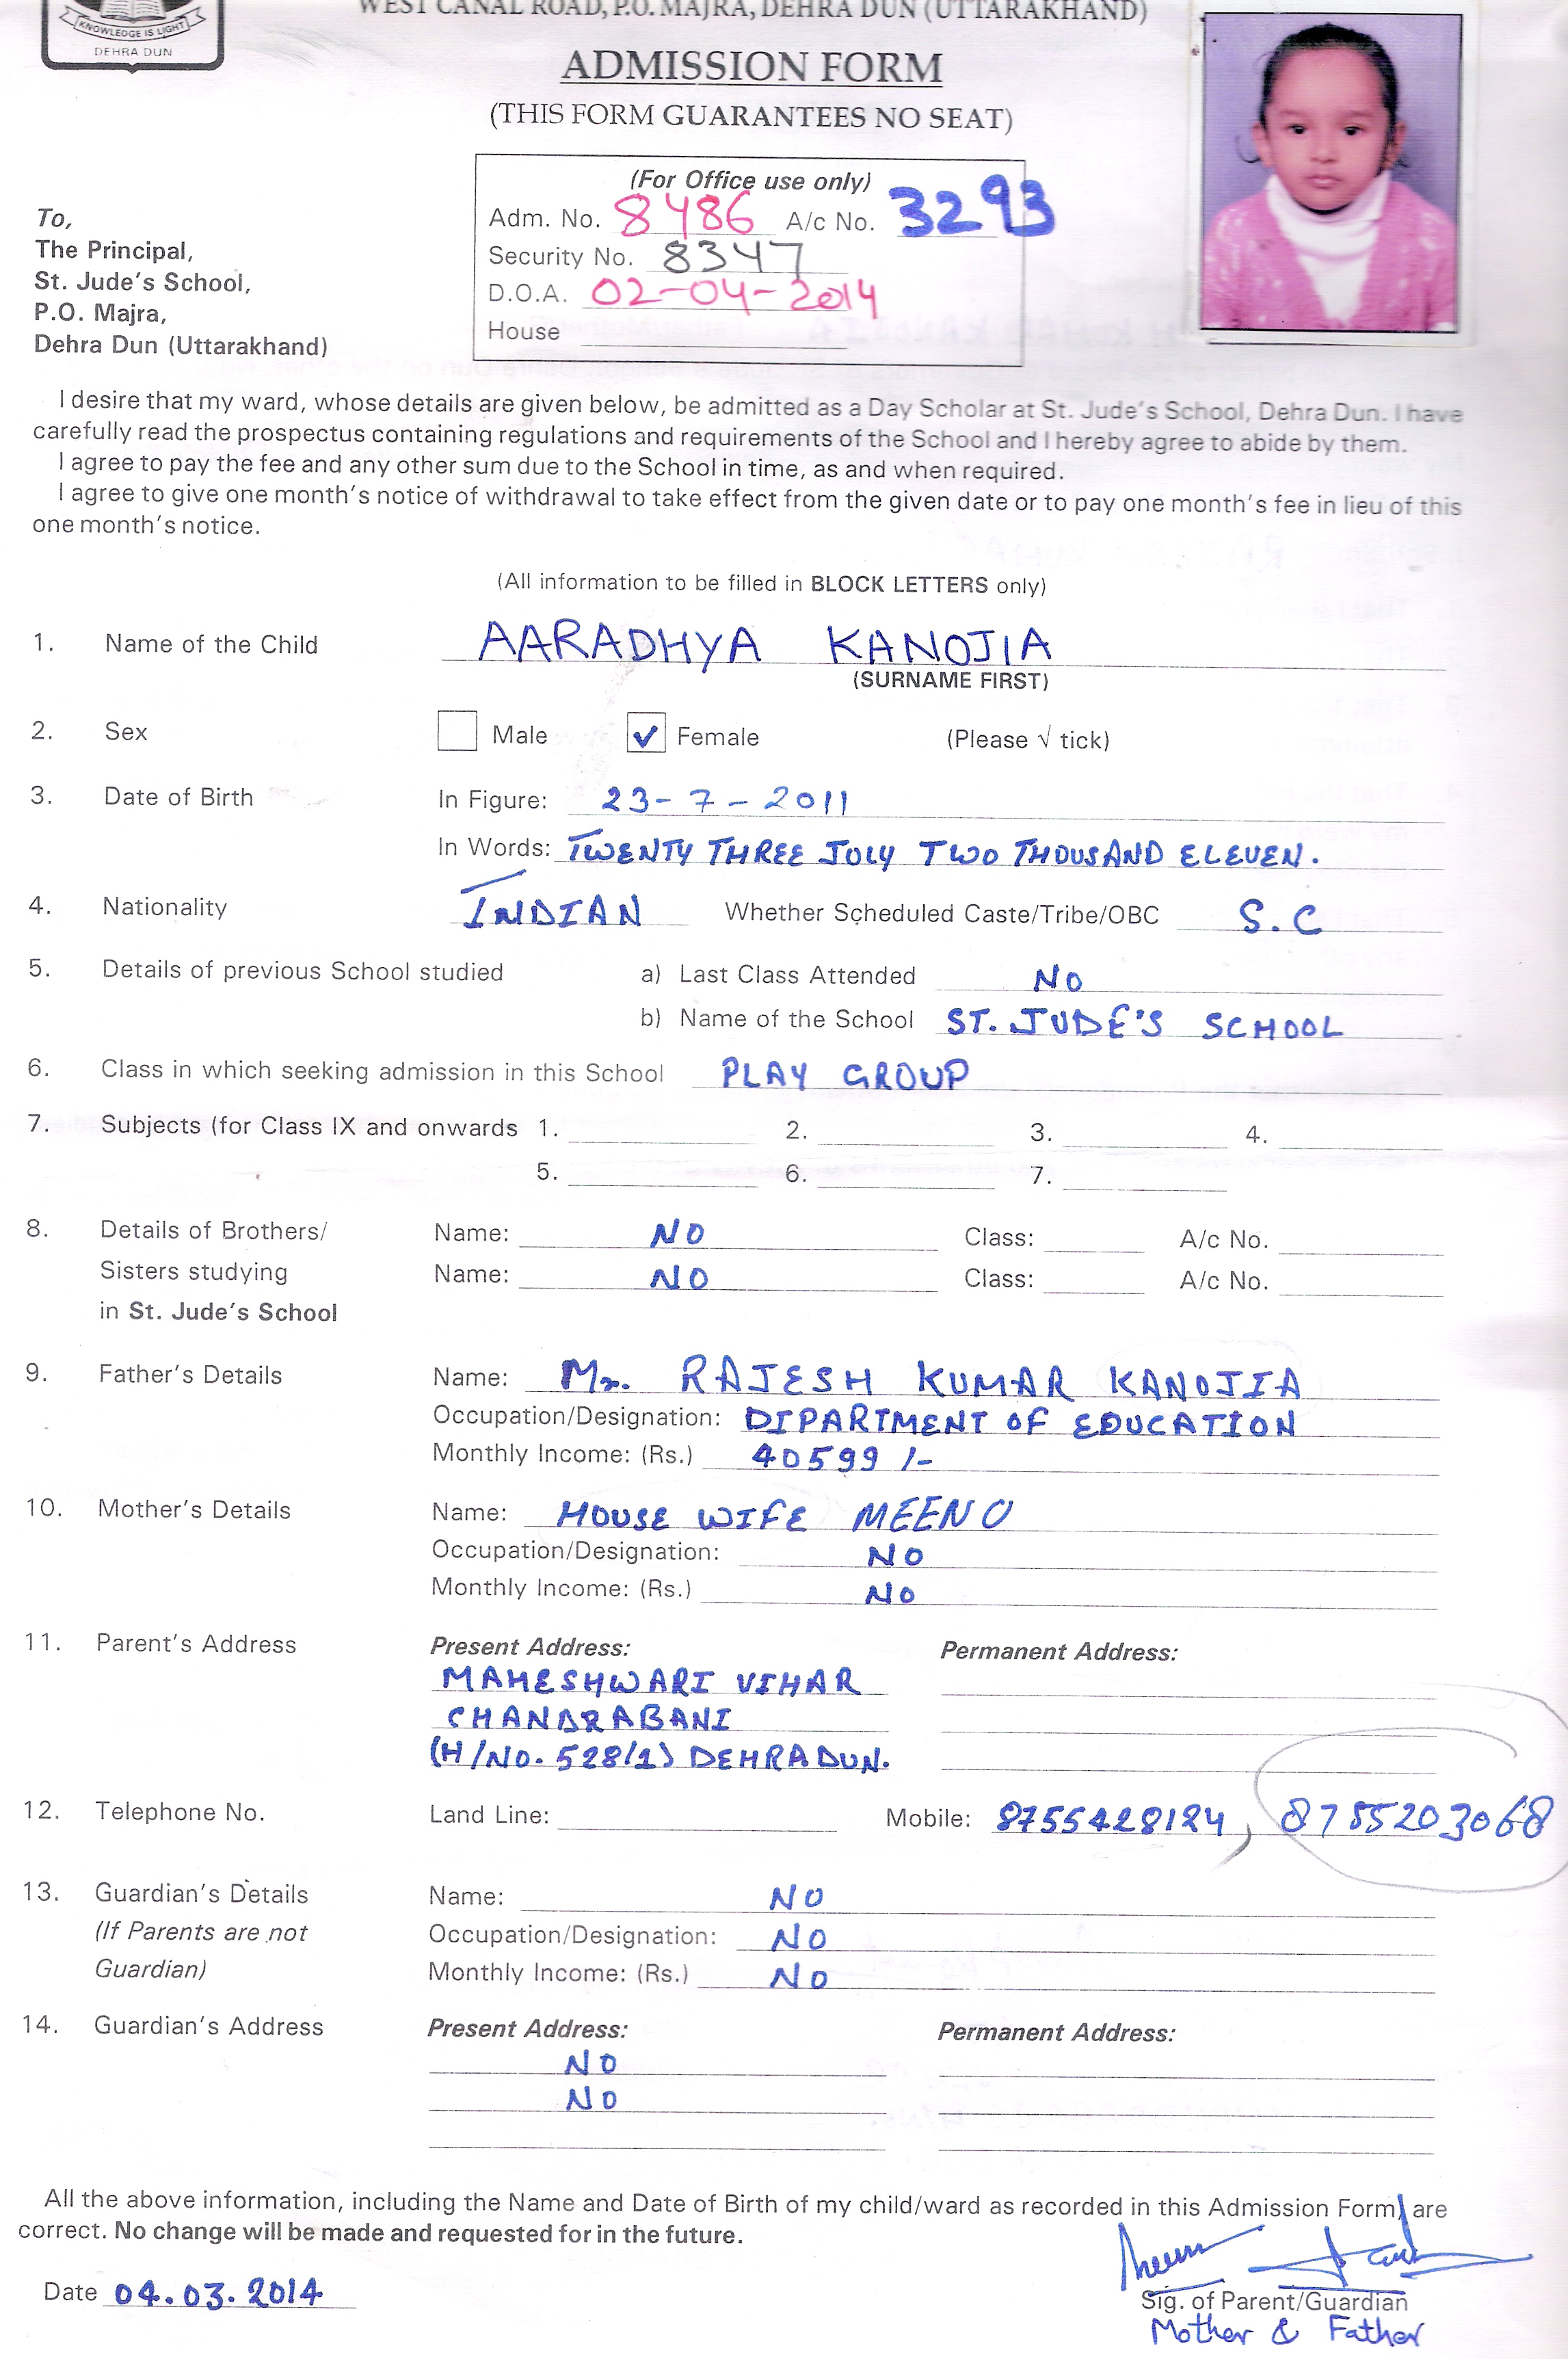 KNOWLEDGE IS LIGHT
DEHRA DUN
WEST CANAL ROAD, P.O. MAJRA, DEHRA DUN (UTTARAKHAND)
ADMISSION FORM
(THIS FORM GUARANTEES NO SEAT)
(For Office use only)
Adm. No. 8486 A/c No. 3293
Security No. 8347
D.O.A. 02-04-2014
House
To,
The Principal,
St. Jude's School,
P.O. Majra,
Dehra Dun (Uttarakhand)
I desire that my ward, whose details are given below, be admitted as a Day Scholar at St. Jude's School, Dehra Dun. I have
carefully read the prospectus containing regulations and requirements of the School and I hereby agree to abide by them.
I agree to pay the fee and any other sum due to the School in time, as and when required.
I agree to give one month's notice of withdrawal to take effect from the given date or to pay one month's fee in lieu of this
one month's notice.
(All information to be filled in BLOCK LETTERS only)
1. Name of the Child AARADHYA KANOJIA
(SURNAME FIRST)
2. Sex Male ✓ Female (Please √ tick)
3. Date of Birth In Figure: 23-7-2011
In Words: TWENTY THREE JULY TWO THOUSAND ELEVEN.
4. Nationality INDIAN Whether Scheduled Caste/Tribe/OBC S.C
5. Details of previous School studied a) Last Class Attended NO
b) Name of the School ST. JUDE'S SCHOOL
6. Class in which seeking admission in this School PLAY GROUP
7. Subjects (for Class IX and onwards 1. 2. 3. 4.
5. 6. 7.
8. Details of Brothers/ Name: NO Class: A/c No.
Sisters studying Name: NO Class: A/c No.
in St. Jude's School
9. Father's Details Name: Mr. RAJESH KUMAR KANOJIA
Occupation/Designation: DIPARTMENT OF EDUCATION
Monthly Income: (Rs.) 40599 /-
10. Mother's Details Name: HOUSE WIFE MEENU
Occupation/Designation: NO
Monthly Income: (Rs.) NO
11. Parent's Address Present Address: Permanent Address:
MAHESHWARI VIHAR
CHANDRABANI
(H/NO. 528/1) DEHRADUN.
12. Telephone No. Land Line: Mobile: 8755428124, 8755203068
13. Guardian's Details Name: NO
(If Parents are not Occupation/Designation: NO
Guardian) Monthly Income: (Rs.) NO
14. Guardian's Address Present Address: Permanent Address:
NO
NO
All the above information, including the Name and Date of Birth of my child/ward as recorded in this Admission Form, are
correct. No change will be made and requested for in the future.
Date 04.03.2014
Sig. of Parent/Guardian
Mother & Father